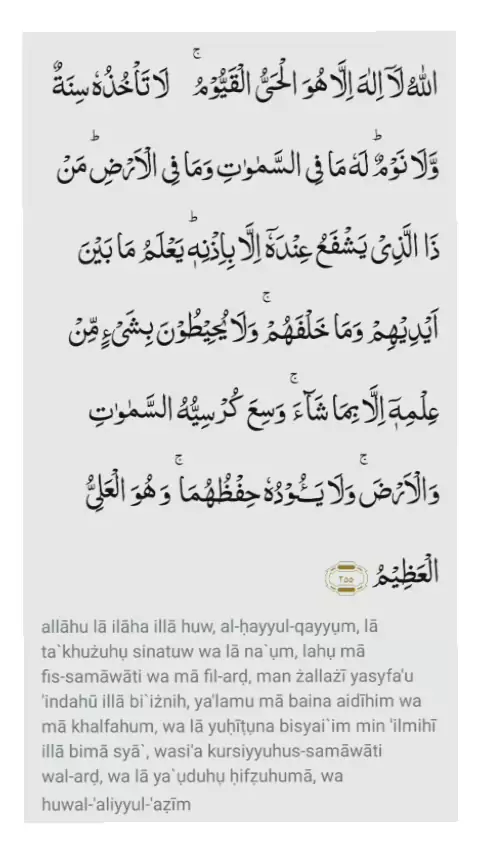 اَللّٰهُ لَآ اِلٰهَ اِلَّا هُوَ الْحَيُّ الْقَيُّوْمُ ۚ لَا تَأْخُذُهٗ سِنَةٌ
وَّلَا نَوْمٌ ۗ لَهٗ مَا فِى السَّمٰوٰتِ وَمَا فِى الْاَرْضِ ۗ مَنْ
ذَا الَّذِيْ يَشْفَعُ عِنْدَهٗٓ اِلَّا بِاِذْنِهٖ ۗ يَعْلَمُ مَا بَيْنَ
اَيْدِيْهِمْ وَمَا خَلْفَهُمْ ۚ وَلَا يُحِيْطُوْنَ بِشَيْءٍ مِّنْ
عِلْمِهٖٓ اِلَّا بِمَا شَاۤءَ ۚ وَسِعَ كُرْسِيُّهُ السَّمٰوٰتِ
وَالْاَرْضَ ۚ وَلَا يَـُٔوْدُهٗ حِفْظُهُمَا ۚ وَهُوَ الْعَلِيُّ
الْعَظِيْمُ ٢٥٥
allāhu lā ilāha illā huw, al-ḥayyul-qayyụm, lā
ta`khużuhụ sinatuw wa lā na`ụm, lahụ mā
fis-samāwāti wa mā fil-arḍ, man żallażī yasyfa'u
'indahū illā bi`iżnih, ya'lamu mā baina aidīhim wa
mā khalfahum, wa lā yuḥīṭụna bisyai`im min 'ilmihī
illā bimā syā`, wasi'a kursiyyuhus-samāwāti
wal-arḍ, wa lā ya`ụduhụ ḥifẓuhumā, wa
huwal-'aliyyul-'aẓīm